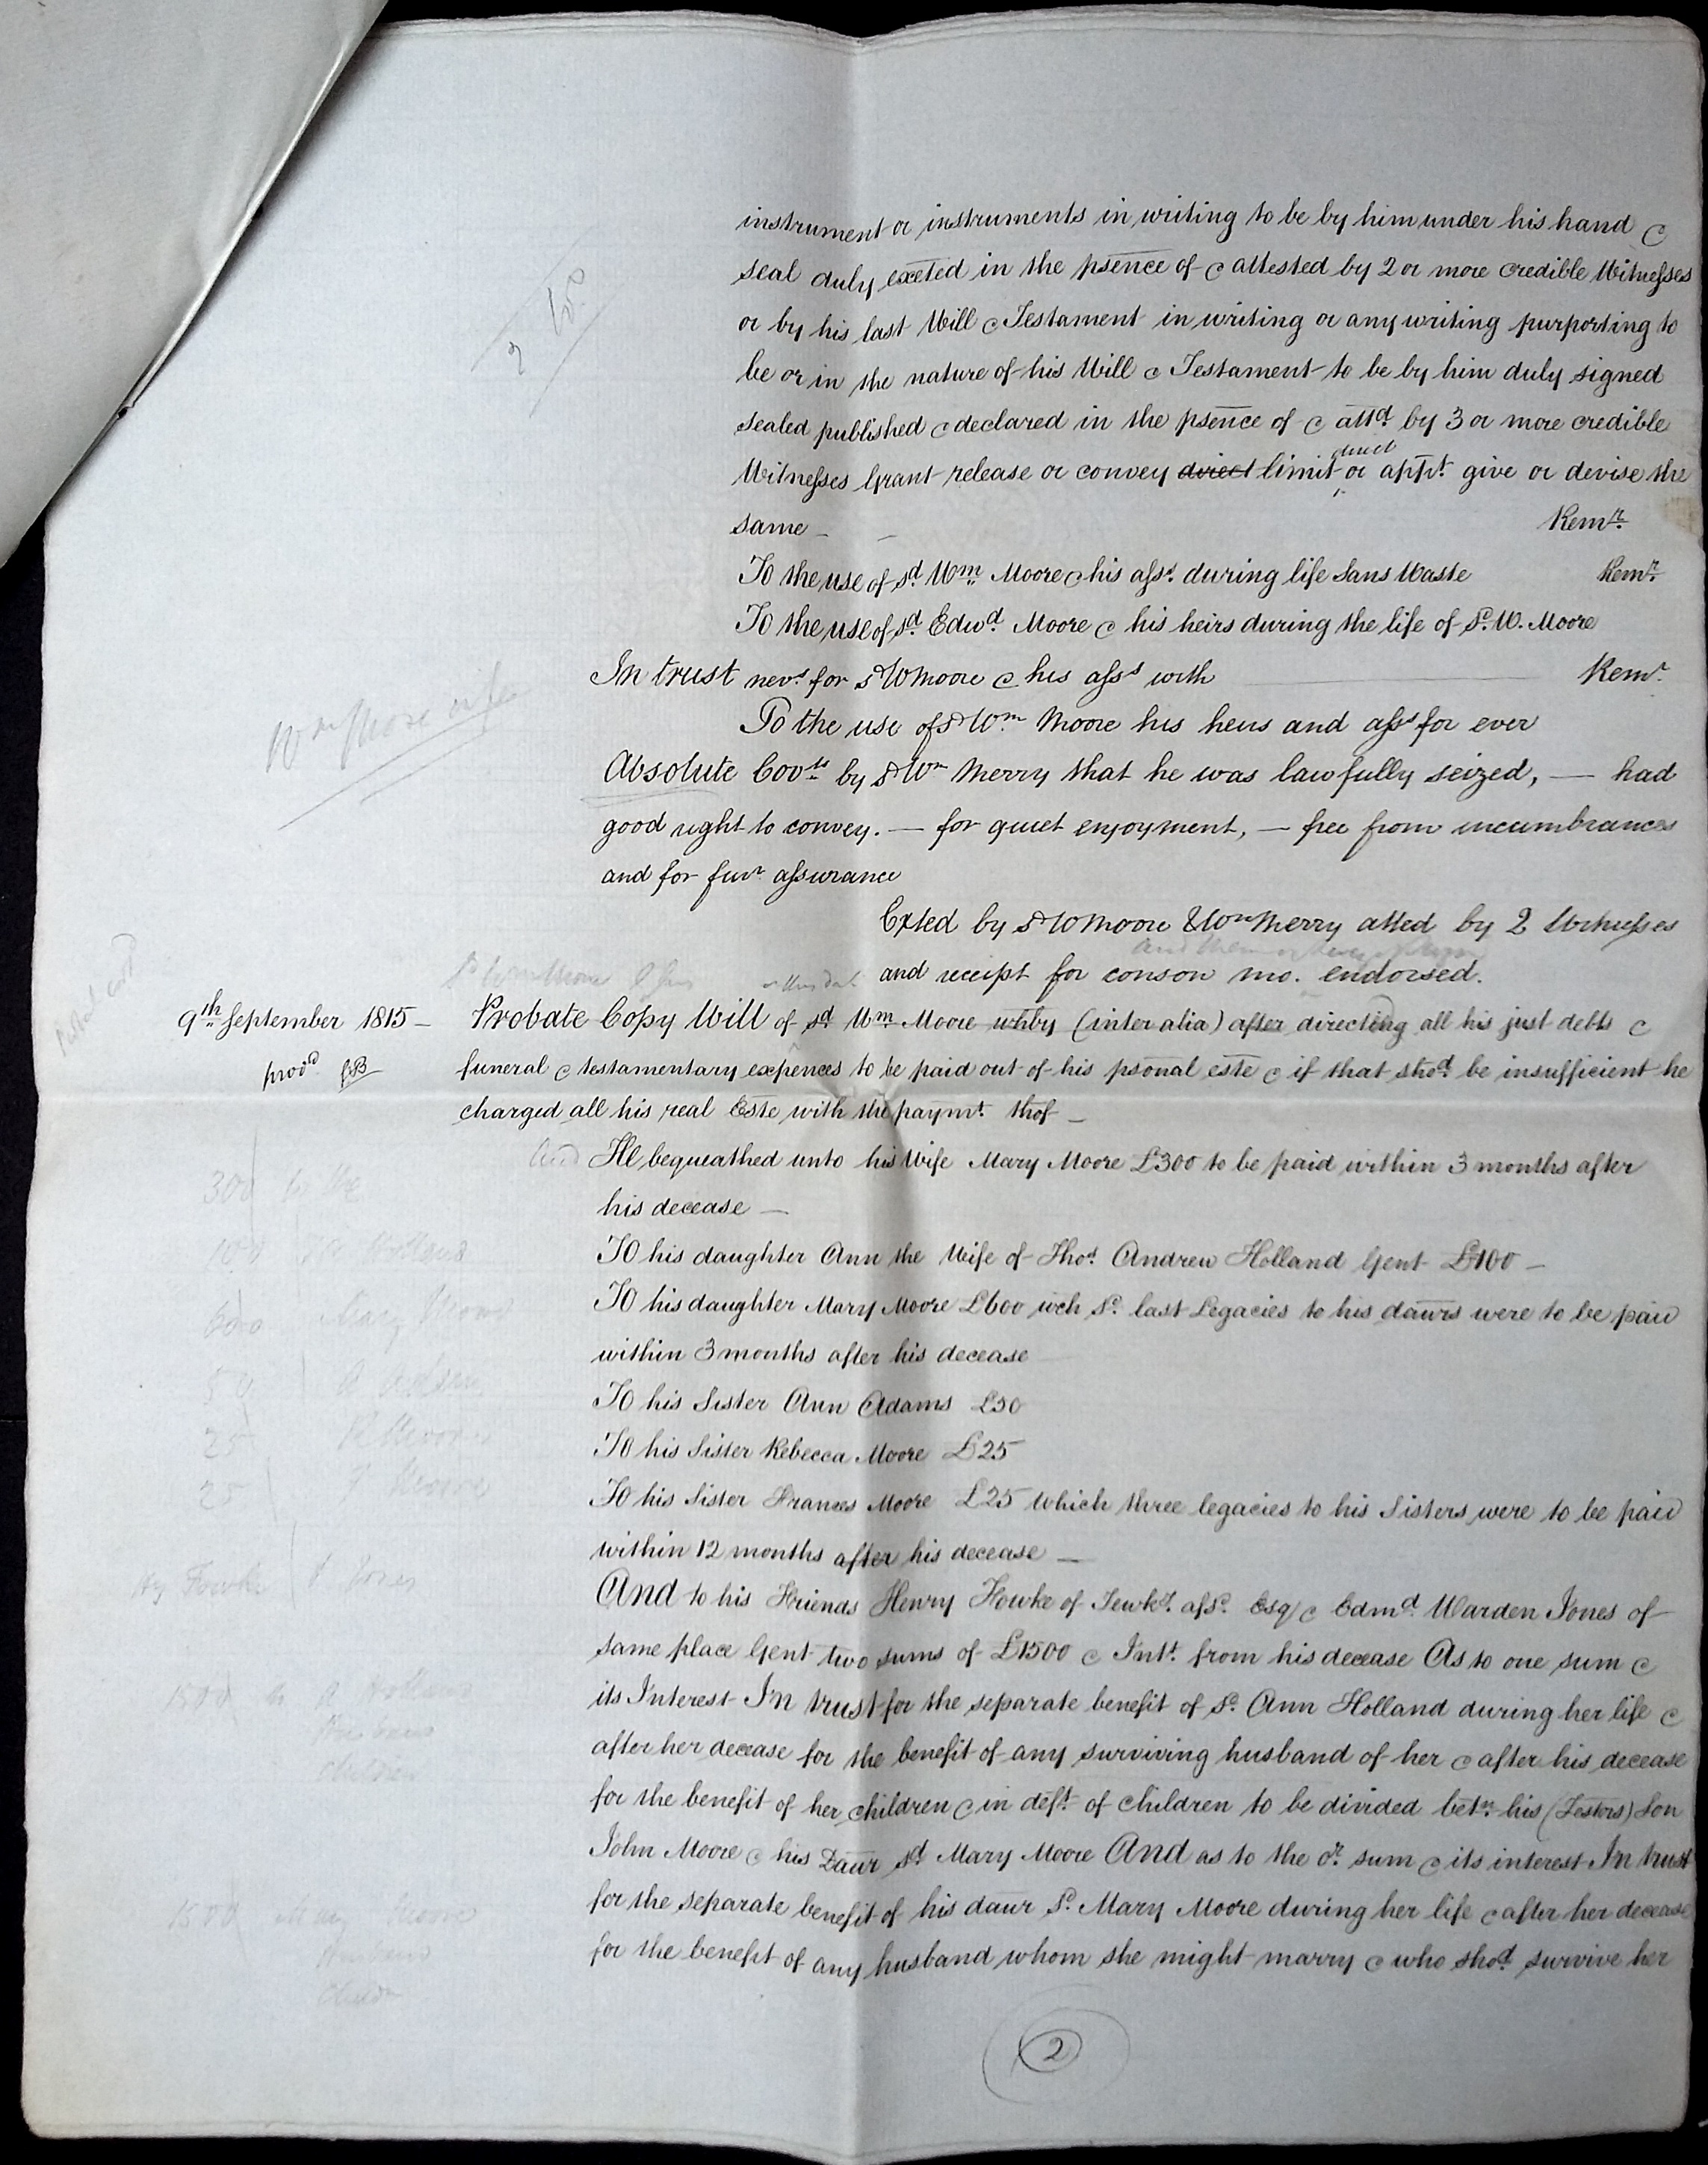 instrument or instruments in writing to be by him under his hand &
seal duly exeted in the psence of & attested by 2 or more credible Witnesses
or by his last Will & Testament in writing or any writing purporting to
be or in the nature of his Will & Testament to be by him duly signed
sealed published & declared in the psence of & attd by 3 or more credible
direct
Witnesses Grant release or convey direct limit or appt. give or devise the
same – Remr.
To the use of sd. Wm. Moore & his asss. during life Sans Waste Remr.
To the use of sd. Edwd. Moore & his heirs during the life of sd. W. Moore
In trust nevs. for sd W Moore & his asss with Remr.
To the use of sd Wm. Moore his heirs and asss for ever
Absolute Covts. by sd Wm Merry that he was lawfully seized, — had
good right to convey. — for quiet enjoyment, — free from incumbrances
and for furr. assurance
Exted by sd W Moore & Wm Merry atted by 2 Witnesses
and receipt for conson mo. endorsed.
9th September 1815 – Probate Copy Will of sd. Wm. Moore whby (inter alia) after directing all his just debts &
provd. funeral & testamentary expences to be paid out of his psonal este & if that shod. be insufficient he
charged all his real Este with the paymt. thof –
And He bequeathed unto his Wife Mary Moore £300 to be paid within 3 months after
300
his decease —
To his daughter Ann the Wife of Thos. Andrew Holland Gent £100 –
100
To his daughter Mary Moore £600 wch sd. last Legacies to his daurs were to be paid
600 Mary Moore
within 3 months after his decease
To his Sister Ann Adams £50
50
To his Sister Rebecca Moore £25
25 R Moore
To his Sister Frances Moore £25 which three legacies to his Sisters were to be paid
25 F Moore
within 12 months after his decease —
And to his Friends Henry Fowke of Tewky. afsd. Esq & Edmd. Warden Jones of
Hy Fowke Jones
same place Gent two sums of £1500 & Intt. from his decease As to one sum &
its Interest In trust for the separate benefit of sd. Ann Holland during her life &
1500
after her decease for the benefit of any surviving husband of her & after his decease
children
for the benefit of her children & in deft. of children to be divided betn. his (Testors) Son
John Moore & his Daur sd. Mary Moore And as to the or. sum & its interest In trust
for the separate benefit of his daur sd. Mary Moore during her life & after her decease
1500 Mary Moore
for the benefit of any husband whom she might marry & who shod. survive her
Husband
2